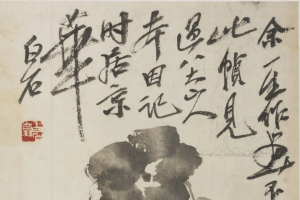 余一生作画不
此幀見
過八大山人
本因記
時居京
華
白石